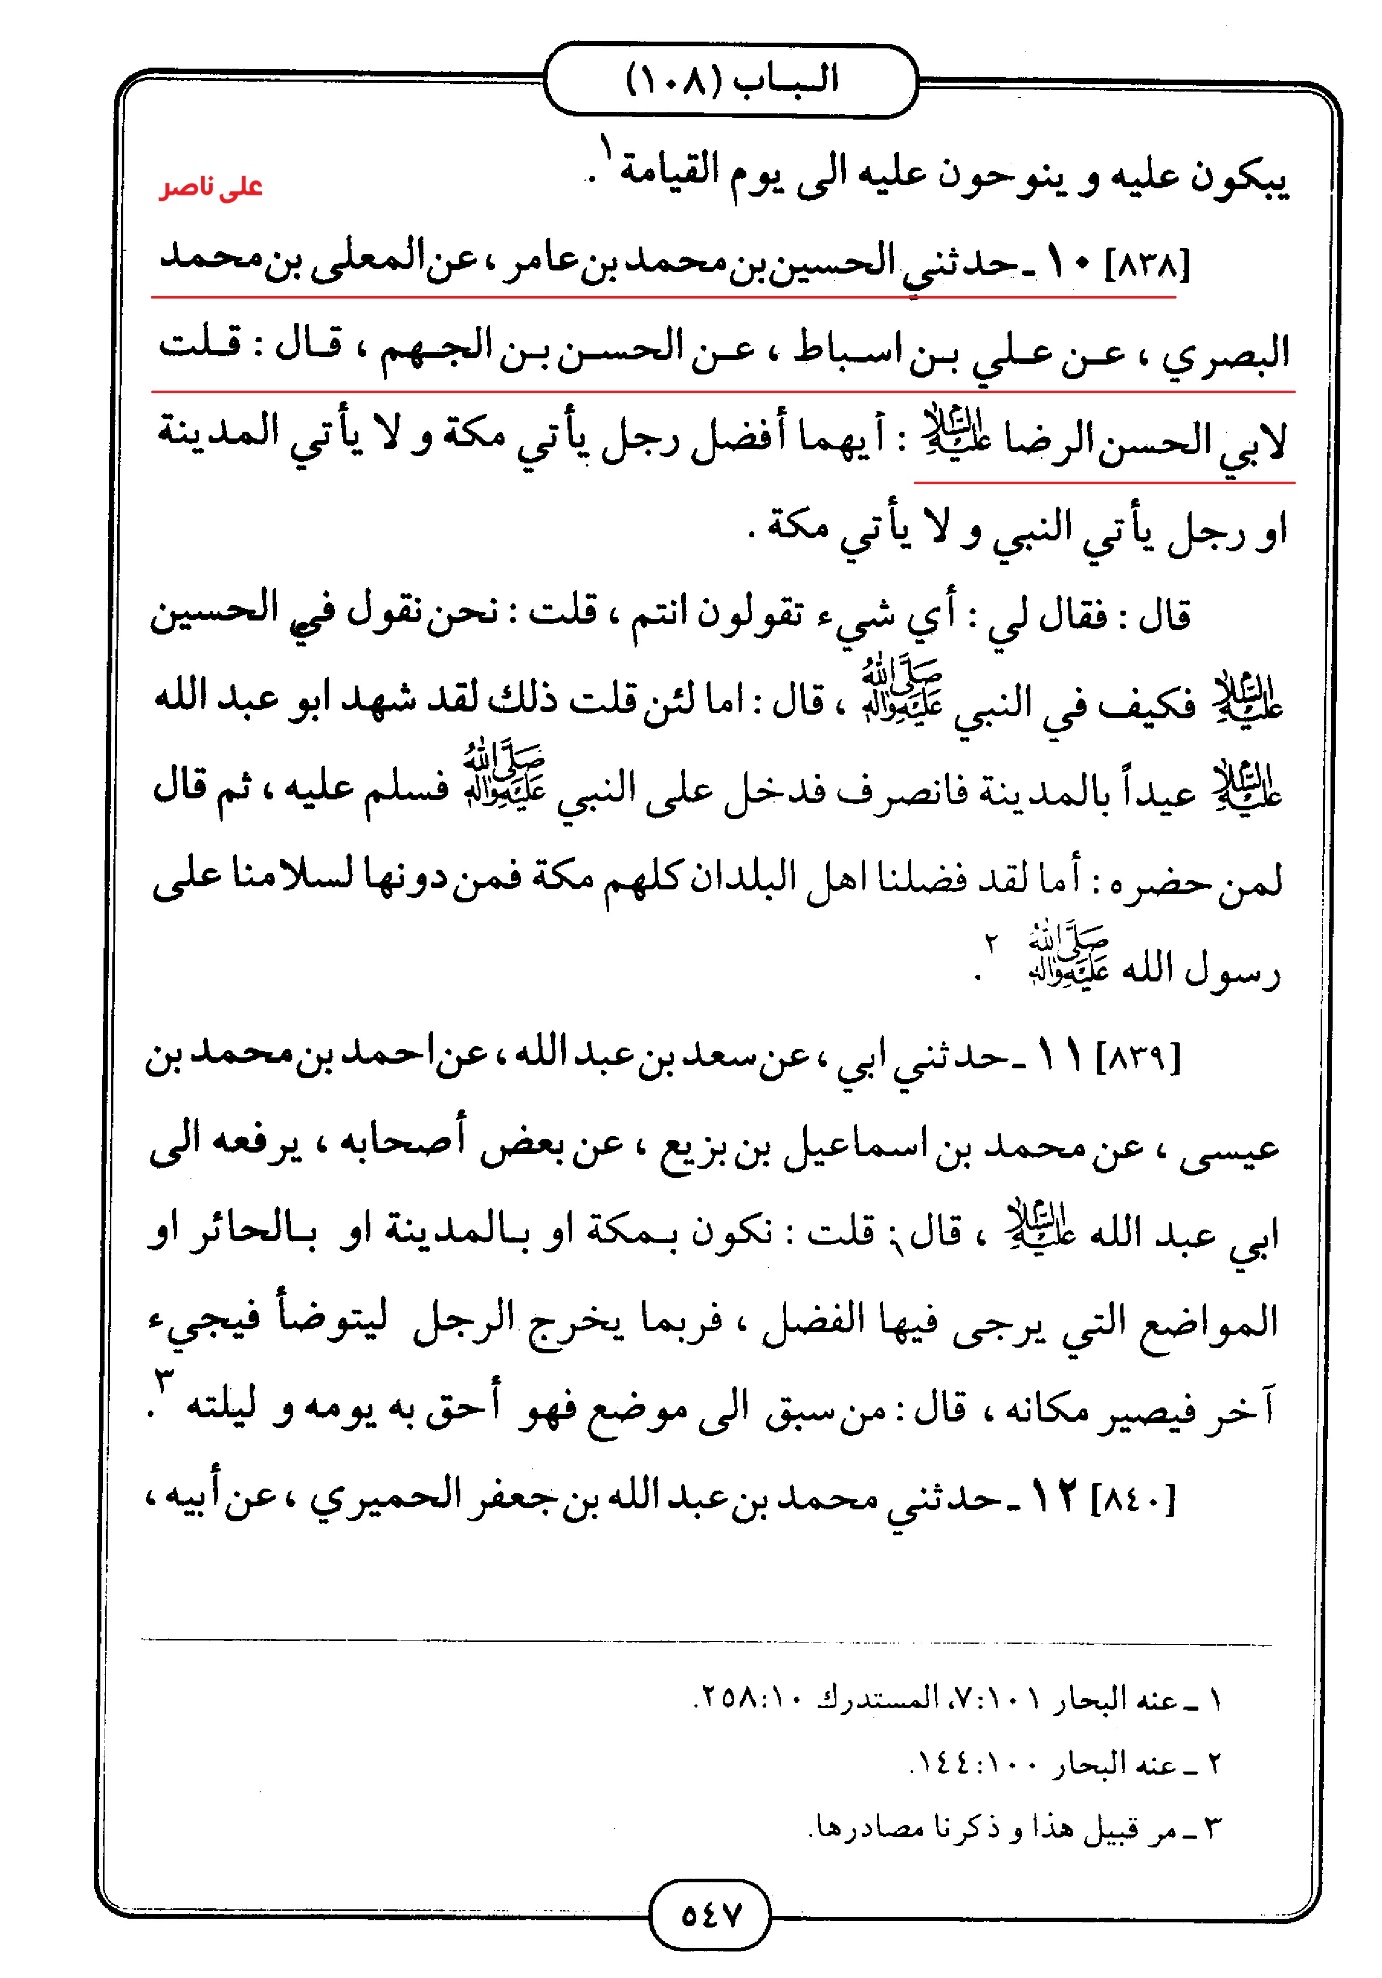 الـبـاب (١٠٨)
يبكون عليه و ينوحون عليه الى يوم القيامة١.
على ناصر
[٨٣٨] ١٠ ـ حدثني الحسين بن محمد بن عامر ، عن المعلى بن محمد
البصري ، عـن عـلي بـن اسـباط ، عـن الحسـن بـن الجـهم ، قـال : قـلت
لابي الحسن الرضا عليه السلام : أيهما أفضل رجل يأتي مكة و لا يأتي المدينة
او رجل يأتي النبي و لا يأتي مكة .
قال : فقال لي : أي شيء تقولون انتم ، قلت : نحن نقول في الحسين
عليه السلام فكيف في النبي صلى الله عليه وآله ، قال : اما لئن قلت ذلك لقد شهد ابو عبد الله
عليه السلام عيداً بالمدينة فانصرف فدخل على النبي صلى الله عليه وآله فسلم عليه ، ثم قال
لمن حضره : أما لقد فضلنا اهل البلدان كلهم مكة فمن دونها لسلامنا على
رسول الله صلى الله عليه وآله ٢.
[٨٣٩] ١١ ـ حدثني ابي ، عن سعد بن عبد الله ، عن احمد بن محمد بن
عيسى ، عن محمد بن اسماعيل بن بزيع ، عن بعض أصحابه ، يرفعه الى
ابي عبد الله عليه السلام ، قال : قلت : نكون بـمكة او بـالمدينة او بـالحائر او
المواضع التي يرجى فيها الفضل ، فربما يخرج الرجل ليتوضأ فيجيء
آخر فيصير مكانه ، قال : من سبق الى موضع فهو أحق به يومه و ليلته ٣.
[٨٤٠] ١٢ ـ حدثني محمد بن عبد الله بن جعفر الحميري ، عن أبيه ،
١ ـ عنه البحار ١٠١:٧، المستدرك ١٠:٢٥٨.
٢ ـ عنه البحار ١٠٠:١٤٤.
٣ ـ مر قبيل هذا و ذكرنا مصادرها.
٥٤٧